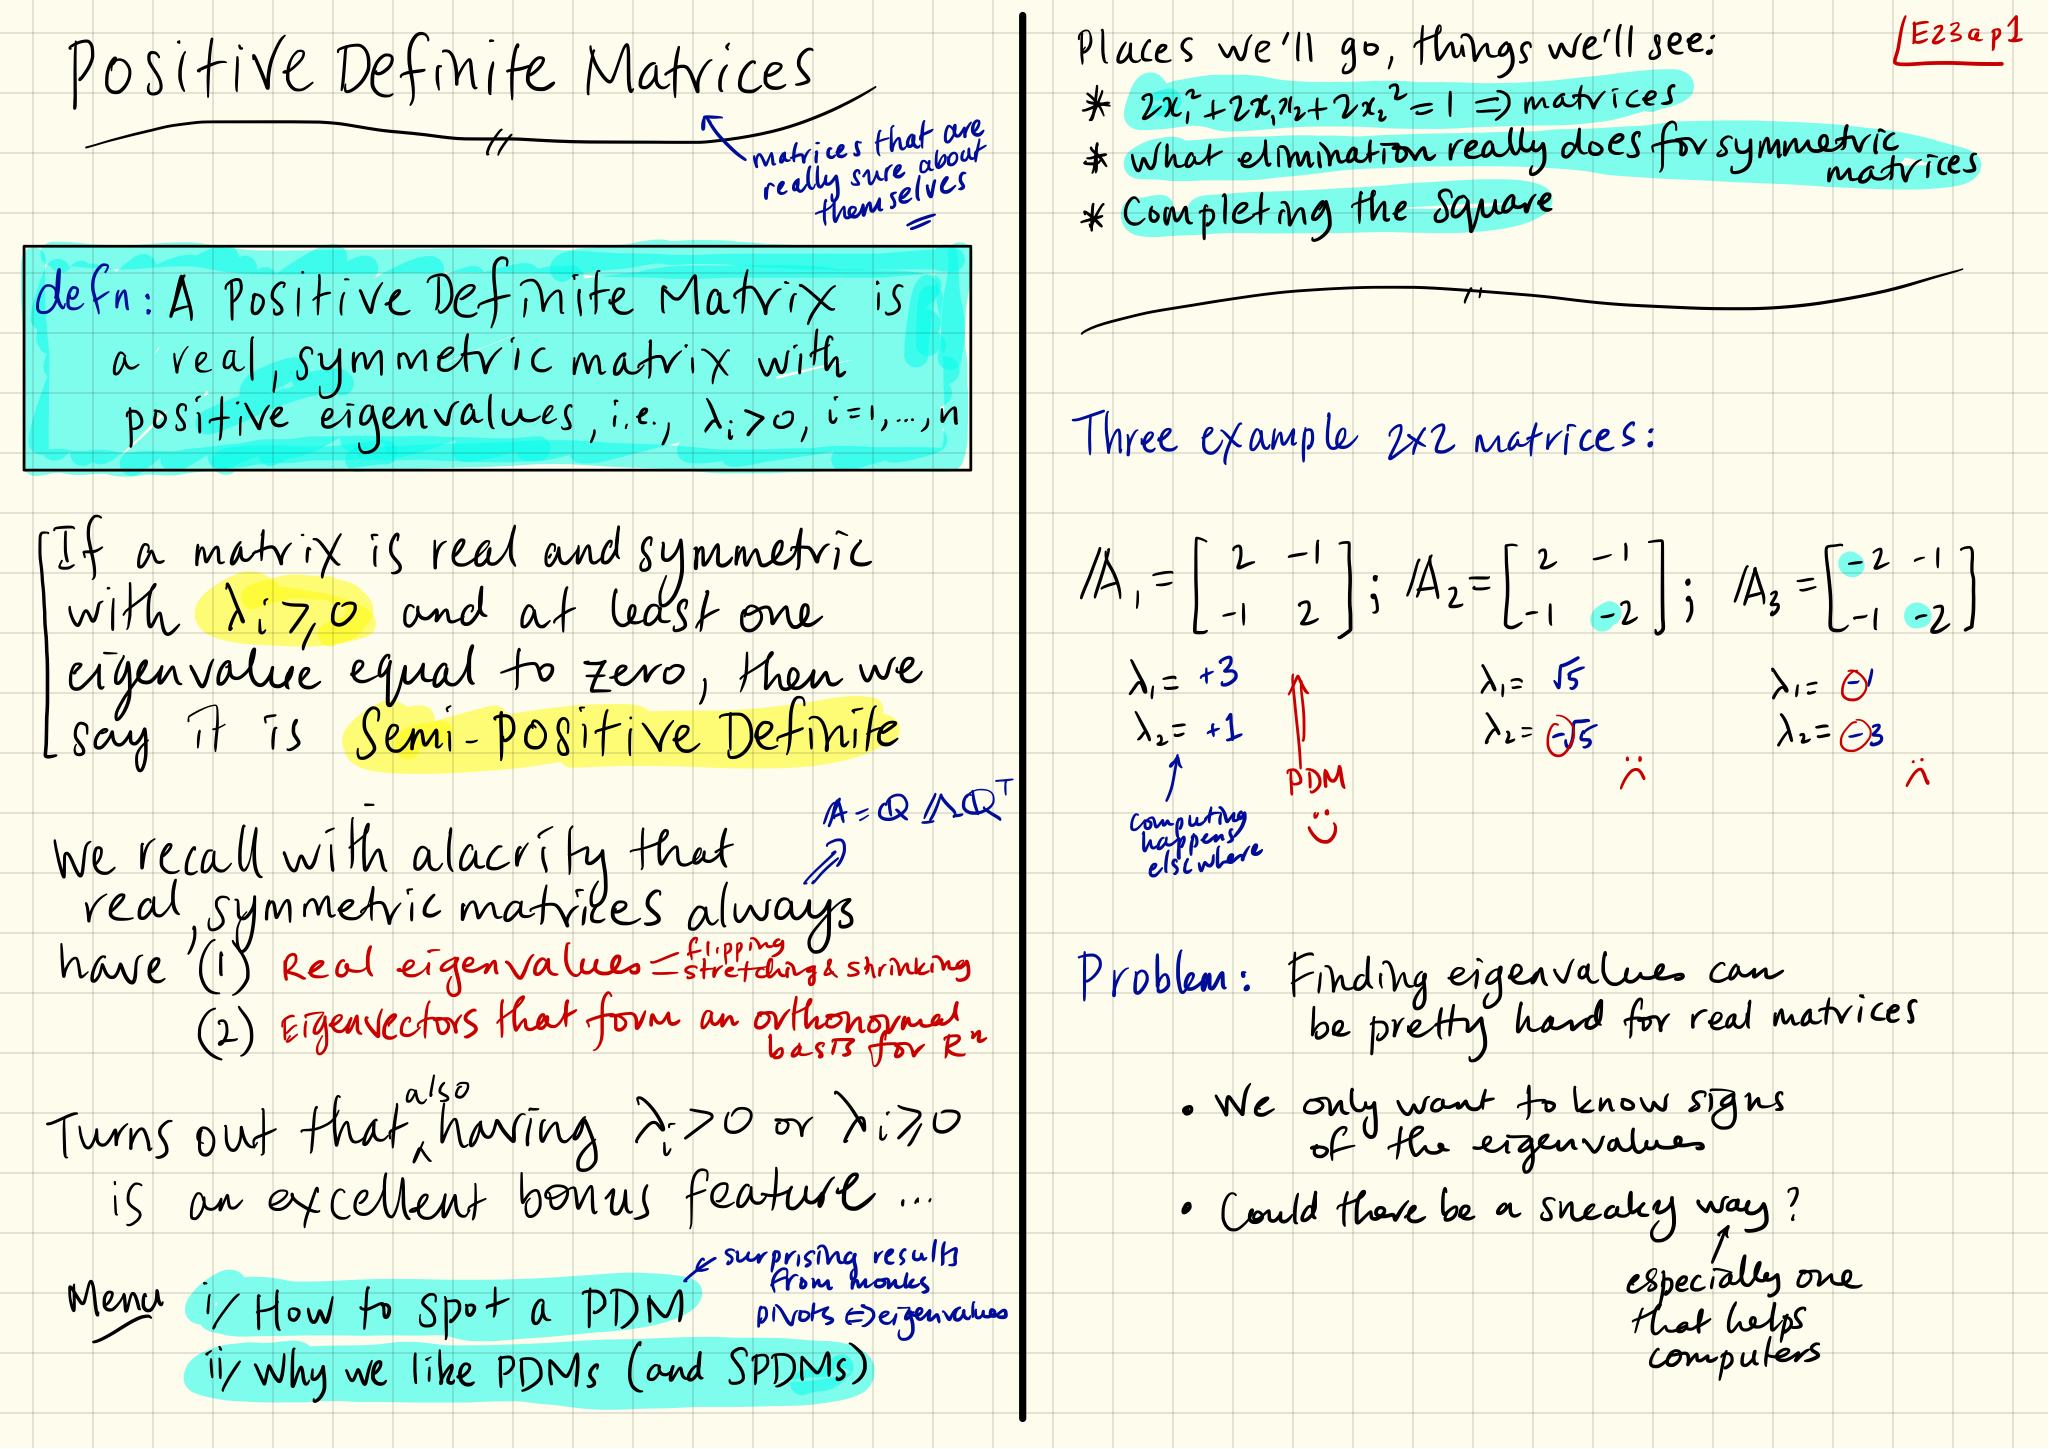 Positive Definite Matrices
matrices that are
really sure about
themselves
defn: A Positive Definite Matrix is
a real, symmetric matrix with
positive eigenvalues, i.e., λᵢ > 0, i=1,...,n
If a matrix is real and symmetric
with λᵢ ⩾ 0 and at least one
eigenvalue equal to zero, then we
say it is Semi-Positive Definite
A = QΛQᵀ
We recall with alacrity that
real, symmetric matrices always
have (1) Real eigenvalues = flipping stretching & shrinking
(2) Eigenvectors that form an orthonormal
basis for Rⁿ
Turns out that also having λᵢ>0 or λᵢ⩾0
is an excellent bonus feature...
Menu i/ How to spot a PDM
surprising results
from monks
pivots ⇔ eigenvalues
ii/ Why we like PDMs (and SPDMs)
E23a p1
Places we'll go, things we'll see:
* 2x₁² + 2x₁x₂ + 2x₂² = 1 ⇒ matrices
* What elimination really does for symmetric
matrices
* Completing the square
Three example 2x2 matrices:
A₁ = [2 -1; -1 2]; A₂ = [2 -1; -1 -2]; A₃ = [-2 -1; -1 -2]
λ₁ = +3 λ₁ = √5 λ₁ = -1
λ₂ = +1 λ₂ = -√5 λ₂ = -3
PDM
computing
happens
elsewhere
Problem: Finding eigenvalues can
be pretty hard for real matrices
• We only want to know signs
of the eigenvalues
• Could there be a sneaky way?
especially one
that helps
computers